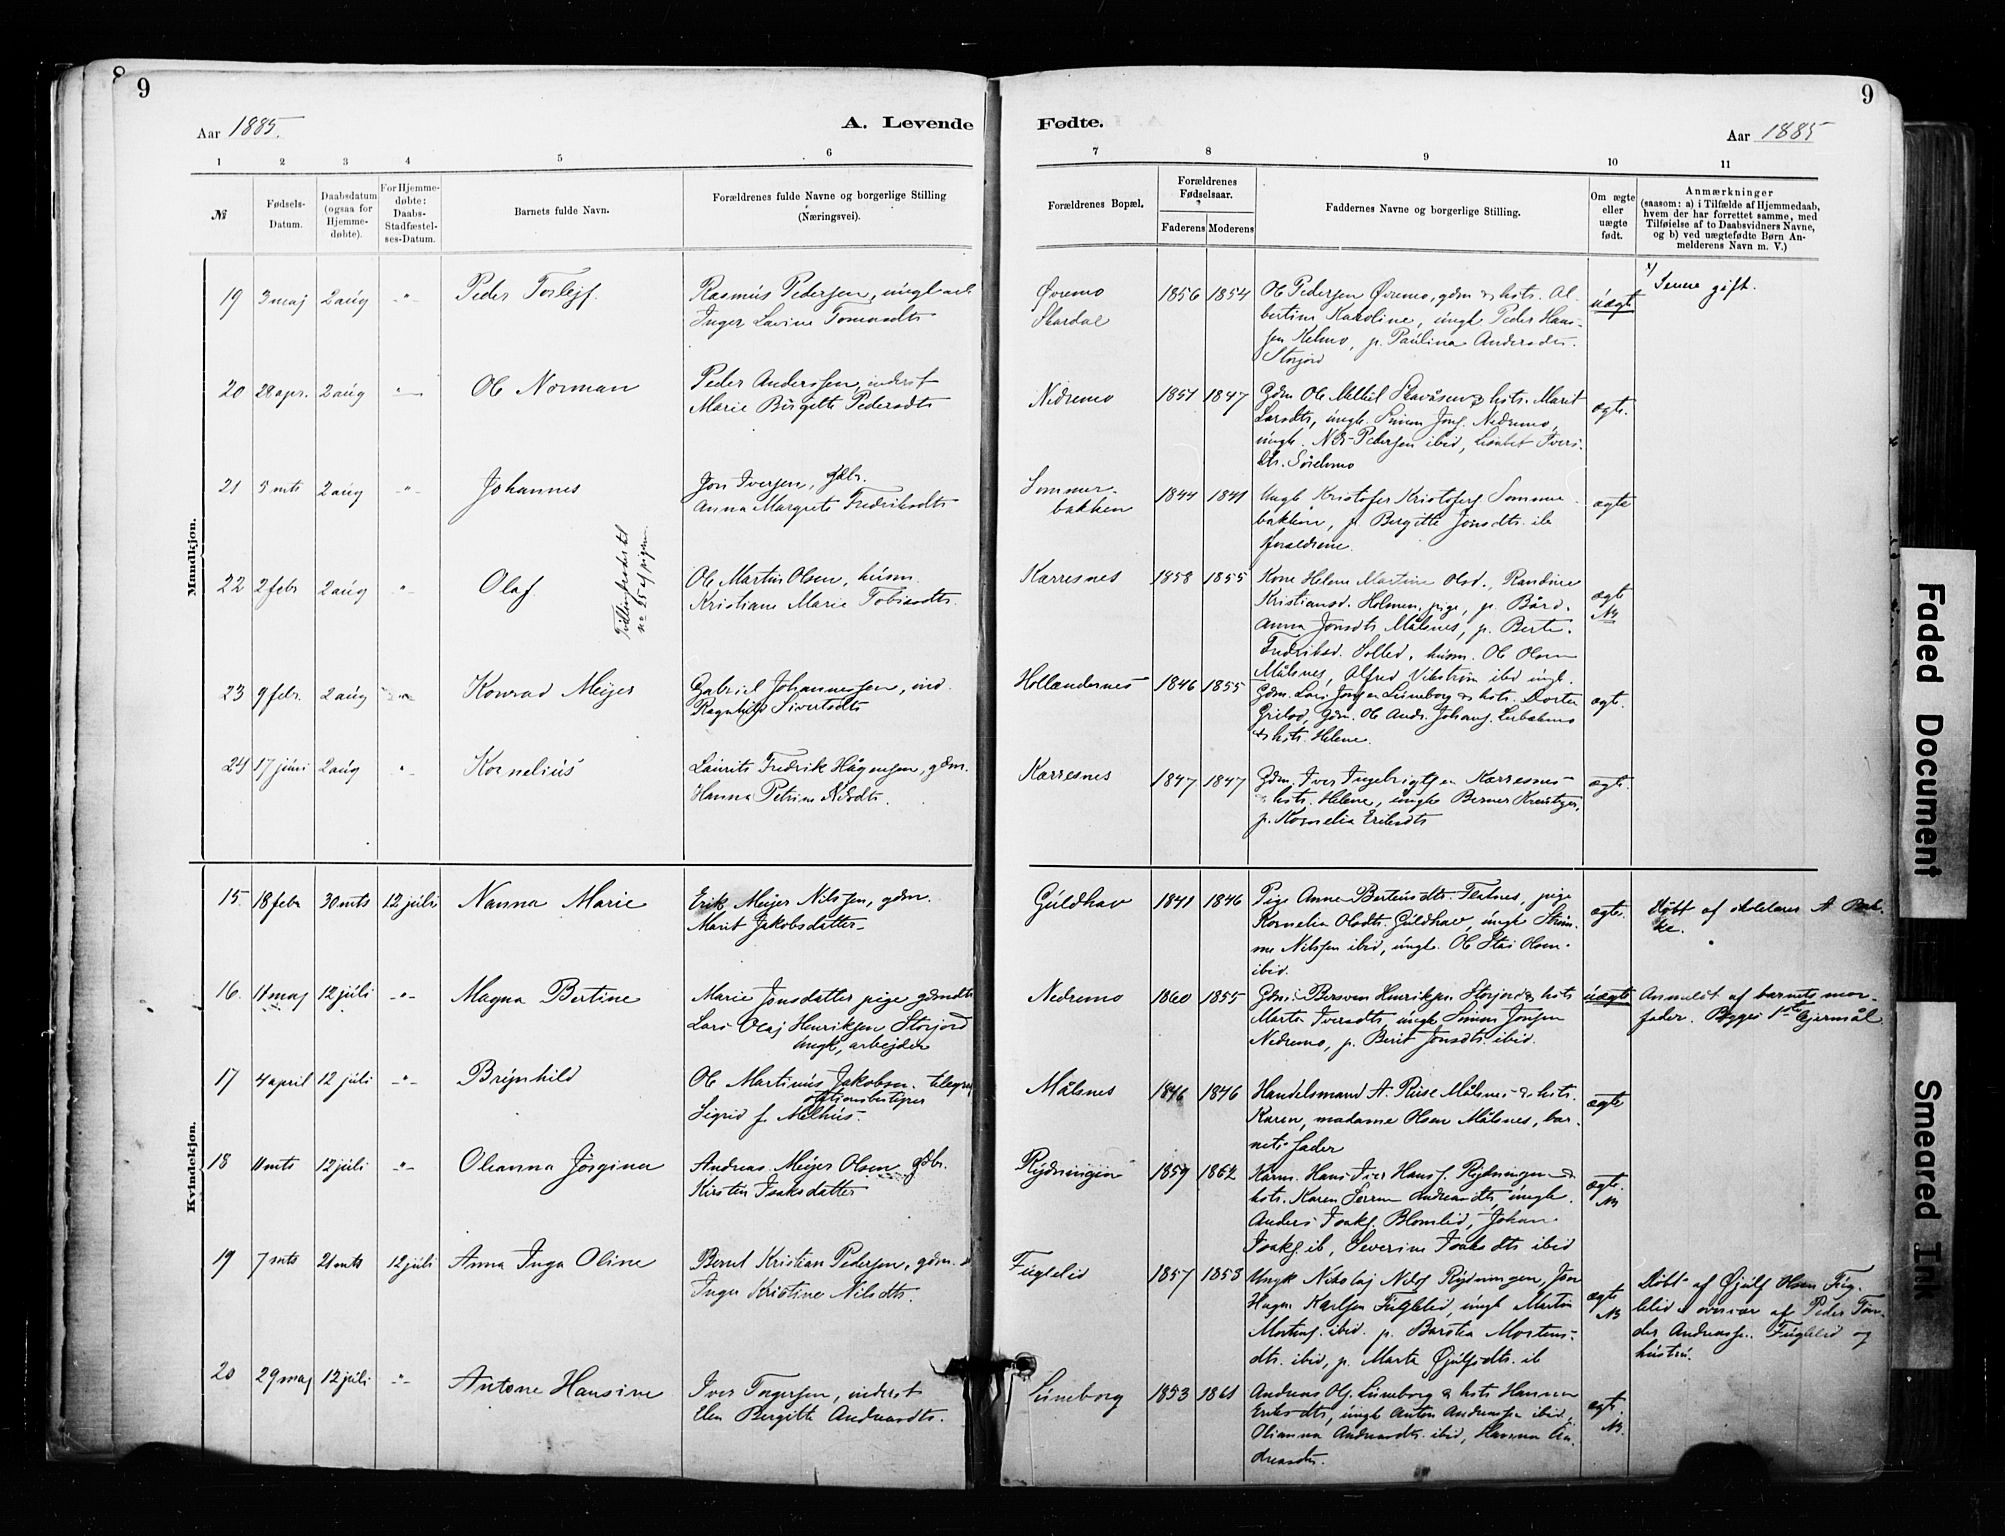 9
9
Aar 1885.
A. Levende
Fødte.
Aar 1885
1 2 3 4 5 6
7 8 9 10 11
№
Fødsels-
Datum.
Daabsdatum
(ogsaa for
Hjemme-
døbte).
For Hjemme-
døbte:
Daabs-
Stadfæstel-
ses-Datum.
Barnets fulde Navn.
Forældrenes fulde Navne og borgerlige Stilling
(Næringsvei).
Forældrenes Bopæl.
Forældrenes
Fødselsaar.
Faderens Moderens
Faddernes Navne og borgerlige Stilling.
Om ægte
eller
uægte
født.
Anmærkninger
(saasom: a) i Tilfælde af Hjemmedaab,
hvem der har forrettet samme, med
Tilføielse af to Daabsvidners Navne,
og b) ved uægtefødte Børn An-
melderens Navn m. V.)
Mandkjøn.
19 3 maj 2 aug -"- Peder Torlejf.
Rasmus Pedersen, ungk.
Inger Lavine Tomasdts
Øvremo
Skardal
1856 1854
Ole Pedersen Øvremo, gdm & hstr. Al-
bertine Karoline, ungk Peder Hans-
sen Kelmo, p. Paulina Andersdtr.
Storjord
uægte
Senere gift.
20 28 apr. 2 aug -"- Ole Norman
Peder Anderssen, inderst
Marie Birgitte Pedersdts
Nedremo
1851 1847
Gdm Ole Mikkel & hstr. Marit
Larsdts, ungk. Simon Jons. Nedremo,
ungk. Nils Pedersen ibid, Lisabet Ivers-
dtr. Sørelmo
ægte.
21 5 mts 2 aug -"- Johannes
Jon Iversen, gdbr.
Anna Margrete Fredriksdts
Sommer-
bakken
1844 1841
Ungk Kristofer Kristofers. Sommer-
bakken, p. Bergitte Jonsdts. ib
forældrene.
ægte
22 2 febr 2 aug -"- Olaf.
Tvillingbroder til
no 25 af pigerne
Ole Martin Olsen, husm.
Kristiane Marie Tobiasdts.
Karresnes
1858 1855
Kone Helene Martine Olsd., Randine
Kristiansd. Holmen, pige, p. Bård.
Anna Jonsdts Målsnes, p. Berte
Fredriksd. Solled, husm. Ole Olsen
Målsnes, Alfred Vikstrøm ibid ungk.
ægte
N3
23 9 febr. 2 aug -"- Konrad Mejer
Gabriel Johannessen, ind.
Ragnhild Sivertsdts
Hollændernes
1846 1855
Gdm. Lars Jensen Lüneborg & hstr. Dortea
Grilsd, Gdm. Ole Andr. Johans. Lerbakmo
& hstr. Helene.
ægt.
24 17 juni 2 aug " Kornelius
Laurits Fredrik Hågensen, gdm.
Hanna Petrine Nilsdts.
Karresnes
1847 1847
Gdm. Iver Ingebrigtsen Karresnes
& hstr. Helene, ungk Berner
p. Kornelia Eriksdts
ægt.
Kvindekjøn.
15. 18 febr 30 mts 12 juli Nanna Marie
Erik Mejer Nilssen, gdm.
Marit Jakobsdatter
Guldhav
1841 1846
Pige Anne Berteusdts. Flatnes, pige
Kornelia Olsdts. Guldhav, ungk
Nilssen ibid, ungk. Ole Olsen
ibid.
ægte.
Døbt af A.
16. 11 maj 12 juli -"- Magna Bertine
Marie Jonsdatter pige gdmdts
Lars Olaj Henriksen Storjord
ungk, arbejder
Nedremo
1860 1855
Gdm. Bersven Henriksen Storjord & hstr
Marta Iversdts, ungk Simon Jonsen
Nedremo, p. Berit Jonsdts. ibid.
uægte
Anmeldt af barnets mor-
fader. Begges 1ste lejermål.
17 4 april 12 juli -"- Brynhild
Ole Martinus Jakobsen. telegraf
stationsbestyrer
Sigrid f. Melhus.
Målsnes
1846 1846
Handelsmand A. Ruse Målsnes & hstr.
Karen, madame Olsen Målsnes, bar-
nets fader
ægte
18 11 mts 12 juli -"- Oleanna Jørgine
Andreas Mejer Olsen gdbr.
Kirsten Isaksdatter
Rydningen
1859 1862
Kårm. Hans Iver Hans s. Rydningen &
hstr. Karen Andreasdts, ungk.
Anders Isaks. Blomlid, Johan
Isaks. ib, Severine Isaks dts ibid
ægte.
N3
19 7 mts 21 mts 12 juli Anna Inga Oline
Bernt Kristian Pedersen, gdm.
Inger Kristine Nilsdts.
Fuglelid
1857 1853
Ungk Nikolaj Nils s. Rydningen, Jon
Hagen Karlsen Fuglelid, ungk Martin
Mortens. ibid. p. Mortens-
dts. ibid, p. Marta Gjulsdts. ib
ægte
N3
Døbt af Gjulf Olsen Fug-
lelid i overvær af Peder Tøn-
der Andreass. Fuglelid og
hustru.
20 29 maj 12 juli -"- Antone Hansine
Iver Torgersen, inderst
Elen Bergitte Andreasdts.
Lüneborg
1853 1861
Andreas Ols. Lüneborg & hstr Hanna
Eriksdts, ungk Anton Andreassen ibid,
Olianna Andreasdts. ibid, Hanna An-
dreasdtr.
ægt.
N3.
Faded Document
Smeared Ink